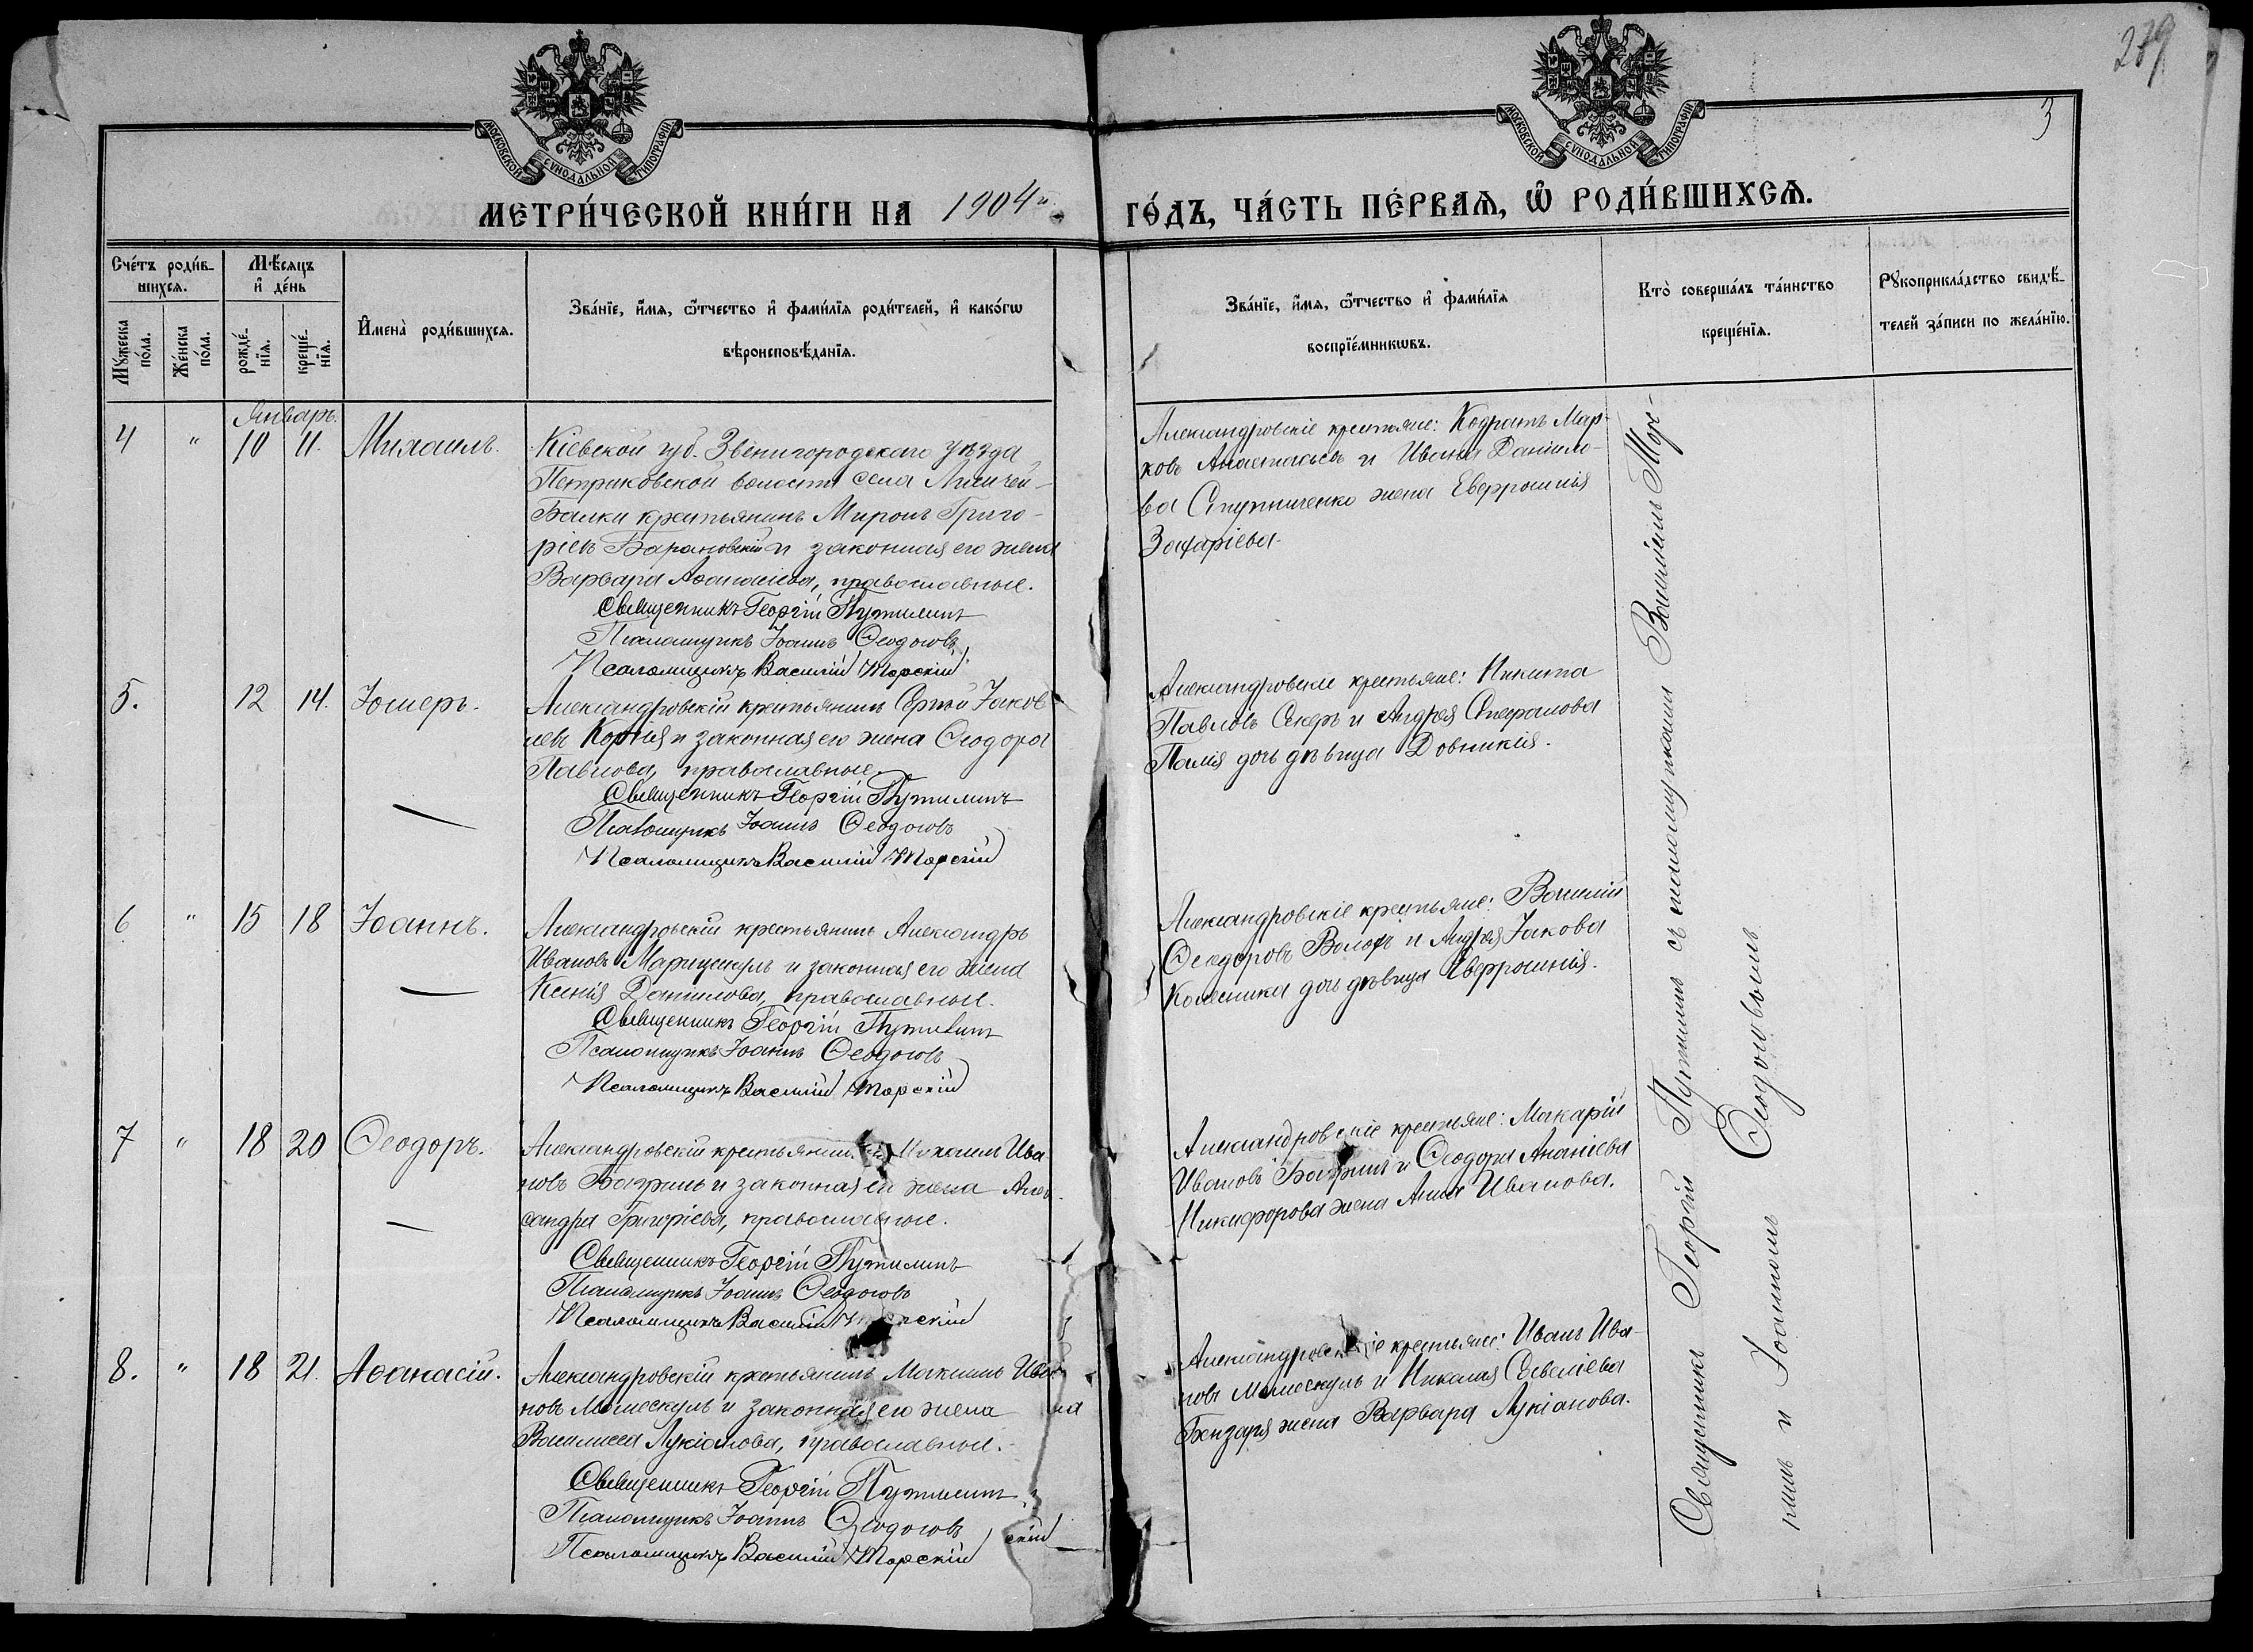 279
3
МОСКОВСКОЙ СѴНОДАЛЬНОЙ ТИПОГРАФІИ
МОСКОВСКОЙ СѴНОДАЛЬНОЙ ТИПОГРАФІИ
МЕТРИ́ЧЕСКОЙ КНИ́ГИ НА 1904 й
ГО́ДЪ, ЧА́СТЬ ПЕ́РВАѦ, Ѽ РОДИ́ВШИХСѦ.
Сче́тъ роди́в-
шихсѧ.
Мꙋ́жеска по́ла.
Же́нска по́ла.
Мѣ́сѧцъ
и҆ де́нь
рожде́-
нїѧ.
креще́-
нїѧ.
И҆мена̀ роди́вшихсѧ.
Зва́нїе, и҆́мѧ, ѻ҆́тчество и҆ фами́лїѧ роди́телей, и҆ како́гѡ
вѣроисповѣ́данїѧ.
Зва́нїе, и҆́мѧ, ѻ҆́тчество и҆ фами́лїѧ
воспрїе́мникѡвъ.
Кто̀ соверша́лъ та́инство
креще́нїѧ.
Рꙋкоприкла́дство свидѣ́-
телей за́писи по жела́нїю.
Январь.
4 " 10 11. Михаилъ.
Кіевской губ. Звенигородскаго уѣзда
Петриковской волости села Лисичей-
Балки крестьянинъ Миронъ Григо-
ріевъ Барановскій и законная его жена
Варвара Аѳанасіева, православные.
Священникъ Георгій Путилинъ
Псаломщикъ Іоаннъ Ѳеодосовъ
Псаломщикъ Василій Торскій
Александровскіе крестьяне: Кодратъ Мар-
ковъ Анастасьевъ и Ивана Данило-
ва Ступниченко жена Евфросинія
Захаріева.
5. 12 14. Іосифъ.
Александровскій крестьянинъ Сергій Іаков-
левъ Корній и законная его жена Ѳеодора
Павлова, православные.
Священникъ Георгій Путилинъ
Псаломщикъ Іоаннъ Ѳеодосовъ
Псаломщикъ Василій Торскій
Александровскіе крестьяне: Никита
Павловъ Секеръ и Андрея Стефанова
Палія дочь дѣвица Домникія.
6 " 15 18 Іоаннъ.
Александровскій крестьянинъ Александръ
Ивановъ Марцускулъ и законная его жена
Ксенія Данилова, православные.
Священникъ Георгій Путилинъ
Псаломщикъ Іоаннъ Ѳеодосовъ
Псаломщикъ Василій Торскій
Александровскіе крестьяне: Василій
Ѳеодоровъ Волохъ и Андрея Іакова
Колесника дочь дѣвица Евфросинія.
7 " 18 20 Ѳеодоръ.
Александровскій крестьянинъ Михаилъ Ива-
новъ Багринъ и законная его жена Алек-
сандра Григоріева, православные.
Священникъ Георгій Путилинъ
Псаломщикъ Іоаннъ Ѳеодосовъ
Псаломщикъ Василій Торскій
Александровскіе крестьяне: Макарій
Ивановъ Багринъ и Ѳеодора Ананіева
Никифорова жена Анна Иванова.
8. " 18 21. Аѳанасій.
Александровскій крестьянинъ Максимъ Ива-
новъ Момескулъ и законная его жена
Василиса Лукіанова, православные.
Священникъ Георгій Путилинъ
Псаломщикъ Іоаннъ Ѳеодосовъ
Псаломщикъ Василій Торскій
Александровскіе крестьяне: Иванъ Ива-
новъ Момескулъ и Николая Савеліева
Бензаря жена Варвара Лукіанова.
Священникъ Георгій Путилинъ съ псаломщиками Василіемъ Тор-
скимъ и Іоанномъ Ѳеодосовымъ